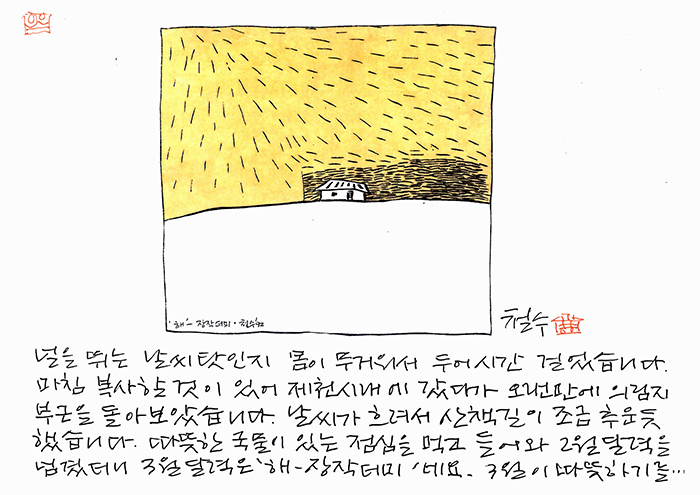 '해' - 장작더미 · 철수 92
철수
널을 뛰는 날씨 탓인지 몸이 무거워서 두어시간 걸었습니다.
마침 복사할 것이 있어 제천시내에 갔다가 오전판에 의림지
부근을 돌아보았습니다. 날씨가 흐려서 산책길이 조금 추운듯
했습니다. 따뜻한 국물이 있는 점심을 먹고 들어와 2월달력을
넘겼더니 3월달력은 '해-장작더미' 네요. 3월이 따뜻하기를…